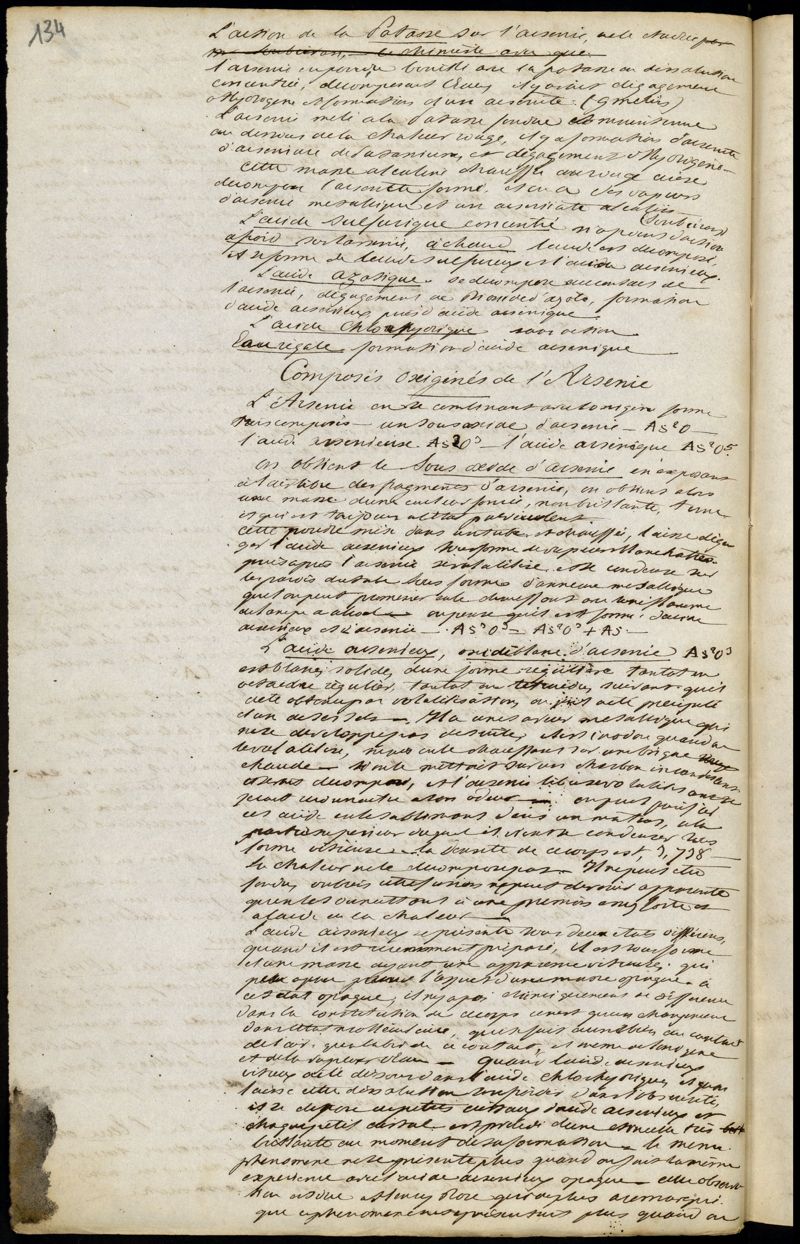 134
L'action de la Potasse sur l'arsenic, a été étudiée par
l'arsenic en poudre bouilli avec la potasse en dissolution
concentrée, décomposant l'eau, il y a dégagement
d'Hydrogène et formation d'un arsenite. (Gmelin)
L'arsenic mêlé à la Potasse fondue
au dessous de la chaleur rouge, il y a formation d'arsenite
d'arseniure de Potassium, et dégagement d'Hydrogène
Cette masse alcaline chauffée au rouge
décompose l'arsenite formé, et on a des vapeurs
d'arsenic métallique et un arseniate alcalin
(Soubeiran)
L'acide sulfurique concentré n'a point d'action
à froid sur l'arsenic, à chaud l'acide est décomposé
et se forme de l'acide sulfureux et l'acide arsenieux
L'acide azotique se décompose au contact de
l'arsenic, dégagement de Bioxide d'azote, formation
d'acide arsenieux puis d'acide arsenique
L'acide Chlorhydrique sans action
Eau régale formation d'acide arsenique
Composés Oxigénés de l'Arsenic
L'Arsenic en se combinant avec l'oxigène forme
trois composés - un sous oxide d'arsenic - As²O -
l'acide arsenieux As²O³ - l'acide arsenique As²O⁵
On obtient le Sous oxide d'arsenic en exposant
à l'air libre des fragments d'arsenic, on obtient alors
une masse d'une couleur foncée, non brillante, terne
et qui est toujours à l'état pulvérulent.
Cette poudre mise dans un tube et chauffée, laisse déga
ger l'acide arsenieux sous forme de vapeurs blanchâtres
puis après l'arsenic se volatilise et se condense sur
les parois du tube sous forme d'anneau métallique
que l'on peut promener en le chauffant avec une flamme
de lampe à alcool - on pense qu'il est formé d'acide
arsenieux et d'arsenic - As²O³ = As²O³ + As -
L'acide arsenieux, oxide blanc d'arsenic As²O³
est blanc, solide, d'une forme régulière tantôt en
octaèdre régulier, tantôt en tétraèdre, suivant qu'il
a été obtenu par volatilisation, ou qu'il a été précipité
d'un de ses sels - Il a une saveur métallique qui
ne se développe pas de suite, il est inodore quand on
le volatilise, même en le chauffant sur une brique
chaude - Si on le mettait sur un charbon incandescent
il serait décomposé, et l'arsenic libre se volatiliserait et se
ferait reconnaître à son odeur - on peut purifier
cet acide en le sublimant dans un matras, à la
partie supérieure duquel il vient se condenser sous
forme vitreuse - la densité de ce corps est, 3,738 -
la chaleur ne le décompose pas - Il ne peut être
fondu
quand on le soumettrait à une pression assez forte et
à l'aide de la chaleur -
L'acide arsenieux se présente sous deux états différens,
quand il est récemment préparé, il est sous forme
d'une masse ayant une apparence vitreuse, qui
peu à peu prend l'aspect d'une masse opaque - à
cet état opaque, il n'y a pas chimiquement de différence
dans la constitution de ce corps, ce n'est qu'un changement
dans l'état moléculaire, qui se fait au contact
de l'air
et de la vapeur d'eau - Quand l'acide arsenieux
vitreux a été dissous dans l'acide Chlorhydrique, et qu'on
laisse cette dissolution refroidir dans l'obscurité
il se dépose de petits cristaux d'acide arsenieux et
chaque petit cristal est précédé d'une étincelle très
brillante au moment de sa formation - le même
phénomène ne se présente plus quand on fait la même
expérience avec l'acide arsenieux opaque - cette observa
tion est due à Henry Rose qui a plus a remarqué
que ce phénomène ne se présentait plus quand on